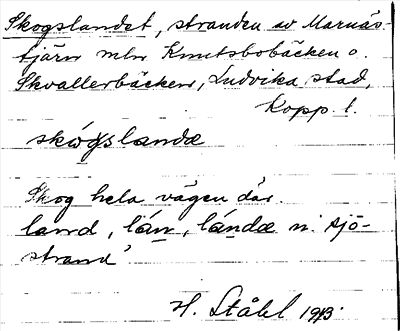 Skogslandet, stranden av Marnäs-
tjärn mln Knutsbobäcken o.
Skvallerbäcken, Ludvika stad,
Kopp. l.
skógslandæ
Skog hela vägen där.
land, lán, lándæ n. 'sjö-
strand'
H. Ståhl 1913.